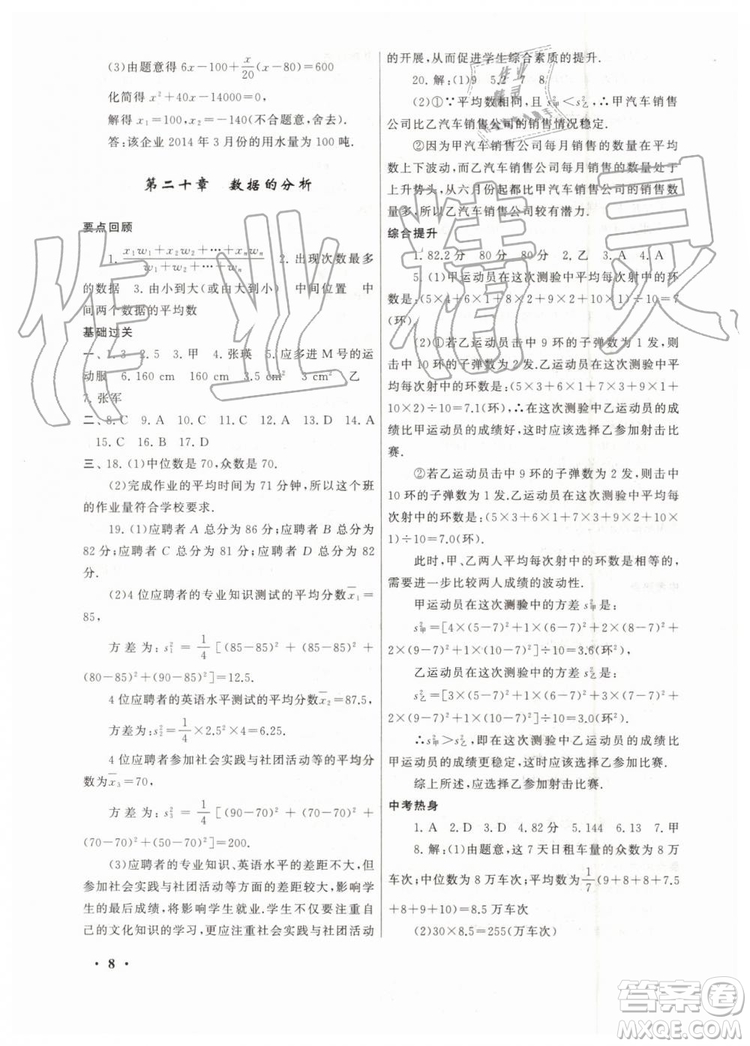 (3)由题意得 6x−100+x/20(x−80)=600
化简得 x²+40x−14000=0
解得 x₁=100, x₂=−140(不合题意,舍去).
答:该企业 2014 年 3 月份的用水量为 100 吨.
第二十章 数据的分析
要点回顾
1. (x₁w₁+x₂w₂+…+xₙwₙ)/(w₁+w₂+…+wₙ) 2. 出现次数最多
的数据 3. 由小到大(或由大到小) 中间位置 中
间两个数据的平均数
基础过关
一、1. 3 2. 5 3. 甲 4. 张瑛 5. 应多进 M 号的运
动服 6. 160 cm 160 cm 3.5 cm² 乙
7. 张军
二、8. C 9. A 10. D 11. C 12. D 13. D 14. A
15. C 16. B 17. D
三、18. (1)中位数是 70,众数是 70.
(2)完成作业的平均时间为 71 分钟,所以这个班
的作业量符合学校要求.
19. (1)应聘者 A 总分为 86 分;应聘者 B 总分为
82 分;应聘者 C 总分为 81 分;应聘者 D 总分为
82 分.
(2)4 位应聘者的专业知识测试的平均分数 x̄₁=
85,
方差为:s₁²=1/4[(85−85)²+(85−85)²+
(80−85)²+(90−85)²]=12.5.
4 位应聘者的英语水平测试的平均分数 x̄₂=87.5,
方差为:s₂²=1/4×2.5²×4=6.25.
4 位应聘者参加社会实践与社团活动等的平均分
数为 x̄₃=70,
方差为:s₃²=1/4[(90−70)²+(70−70)²+
(70−70)²+(50−70)²]=200.
(3)应聘者的专业知识、英语水平的差距不大,但
参加社会实践与社团活动等方面的差距较大,影响学
生的最后成绩,将影响学生就业.学生不仅注重自己
的文化知识的学习,更应注重社会实践与社团活动
· 8 ·
的开展,从而促进学生综合素质的提升.
20. 解:(1)9 5.2 7 8
(2)①∵平均数相同,且 s甲²<s乙²,∴甲汽车销售
公司比乙汽车销售公司的销售情况稳定.
②因为甲汽车销售公司每月销售的数量在平均
数上下波动,而乙汽车销售公司每月销售的数量处于
上升势头,从六月份起都比甲汽车销售公司销售数量
多,所以乙汽车销售公司较有潜力.
综合提升
1. 82.2分 80分 80分 2. 乙 3. A 4. C
5. (1)甲运动员在这次测验中平均每次射中的环
数是:(5×1+6×4+7×2+8×1+9×1+10×1)÷10=7
(环).
①若乙运动员击中 9 环的子弹数为 2 发,则乙运
动员在这次测验中平均每次射中的环数是:(5×3+6
×1+7×1+8×3+9×2)÷10=7.0(环).
②若乙运动员击中 9 环的子弹数为 3 发,则乙运
动员在这次测验中平均每次射中的环数是:(5×3+6
×1+7×1+8×2+9×3)÷10=7.1(环).
(2)①若乙运动员击中 9 环的子弹数为 3 发,则
乙运动员在这次测验中的成绩是:(5×3+6×1+7×
1+8×2+9×3)÷10=7.1(环),∴在这次测验中乙的成绩
比甲运动员的成绩好,这时应该选择乙参加射击比
赛.
②若乙运动员击中 9 环的子弹数为 2 发,则乙运
动员击中 7 环的子弹数为 1 发.乙运动员在这次测验
中平均每次射中的环数是:(5×3+6×1+7×1+8×3
+9×2)÷10=7.0(环).
此时,甲、乙两人平均每次射中的环数是相等的,
需要进一步比较两人成绩的波动性.
甲运动员在这次测验中的方差 s甲²是:
s甲²=[4×(5−7)²+1×(6−7)²+2×(8−7)²+
1×(9−7)²+1×(10−7)²]÷10=3.6(环²)
乙运动员在这次测验中的方差 s乙²是:
s乙²=[3×(5−7)²+1×(6−7)²+3×(8−7)²+
2×(9−7)²+1×(7−7)²]÷10=2.4(环²)
∴s甲²>s乙²,即在这次测验中乙运动员的成绩比
甲运动员的成绩更稳定.
综上所述,应选择乙参加射击比赛.
中考热身
1. A 2. D 3. D 4. 82分 5. 144 6. 13 7. 甲
8. 解:(1)由题意,这 7 天日租车量的众数为 8 万
车次;中位数为 8 万车次;平均数为 1/7(9+8+8+7.5
+8+9+10)=8.5 万车次
(2)30×8.5=255(万车次)
作业精灵
答案圈
MXQE.COM